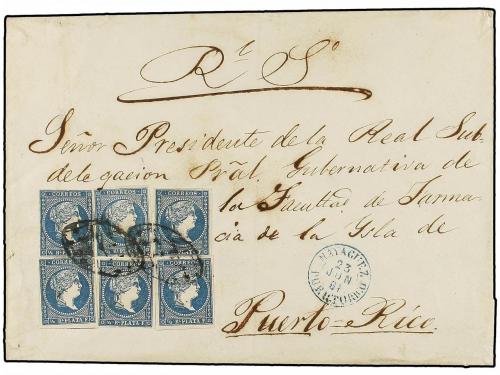 Rl So
Señor Presidente de la Real Sub-
delegacion Pral, Gubernativa de
la Facultad de Farma-
cia de la Isla de
Puerto=Rico.
CORREOS CORREOS CORREOS
½ Rl PLATA F. ½ Rl PLATA F. ½ Rl PLATA F.
CORREOS CORREOS CORREOS
½ Rl PLATA F. ½ Rl PLATA F. ½ Rl PLATA F.
MAYAGUEZ
23
JUN
61
PUERTO RICO